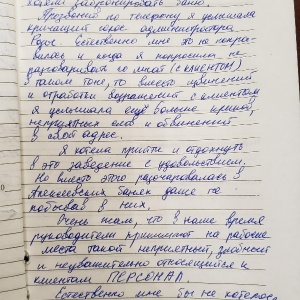 хотели забронировать баню.
Прозвонив по телефону я услышала
кричащий голос администратора
Естественно мне это не понра-
вилось и когда я попросила не
разговаривать со мной (с клиентом)
в таком тоне, то вместо извинений
и отработки возражений с клиентом
я услышала ещё больше криков
неприятных слов и обвинений
в свой адрес.
Я хотела прийти и отдохнуть
в это заведение с удовольствием.
Но вместо этого разочаровалась в
Алексеевских банях даже не
побывав в них.
Очень жаль, что в наше время
руководители принимают на рабочие
места такой неприятный, злобный
и неуважительно относящийся к
клиентам ПЕРСОНАЛ.
Естественно мне бы не хотелось